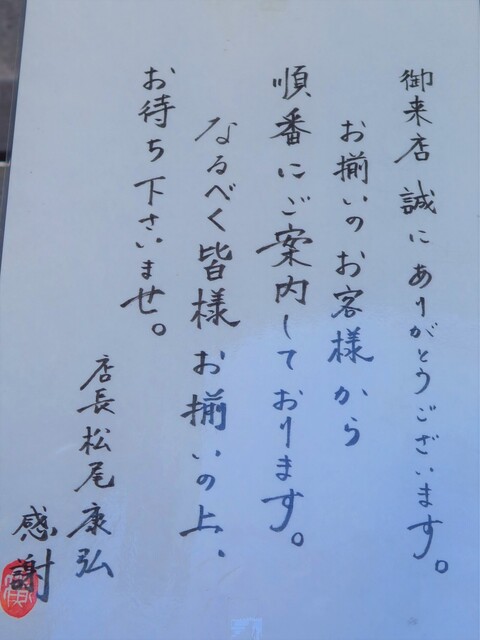 御来店誠にありがとうございます。
お揃いのお客様から
順番にご案内しております。
なるべく皆様お揃いの上、
お待ち下さいませ。
店長松尾康弘
感謝